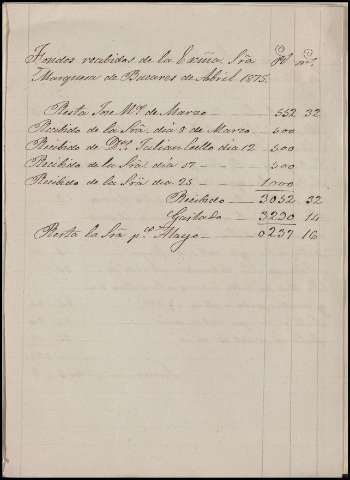 Fondos recibidos de la Exma Sra Rl mrs
Marquesa de Bacares de Abril 1875.
Resta José Ma. de Marzo 552 32
Recibido de la Sra. dia 8 de Marzo 500
Recibido de Dn. Julian Coello dia 12 500
Recibido de la Sra dia 17 500
Recibido de la Sra dia 25 1000
Recibido 3052 32
Gastado 3290 14
Resta la Sra pa. Mayo 0237 16